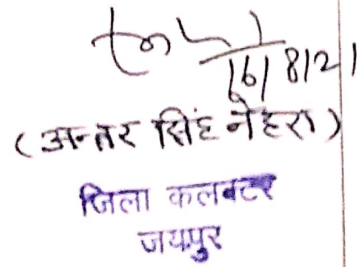 16/8/21
(अन्तर सिंह नेहरा)
जिला कलक्टर
जयपुर